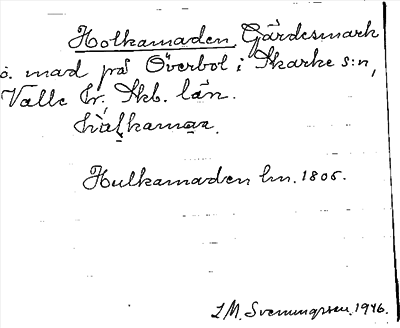 Holkamaden, Gärdesmark
o. mad på Överbol i Skarke s:n,
Valle hr, Skb. län.
Hulkamaden lm. 1806.
I.M. Svenungsson. 1946.